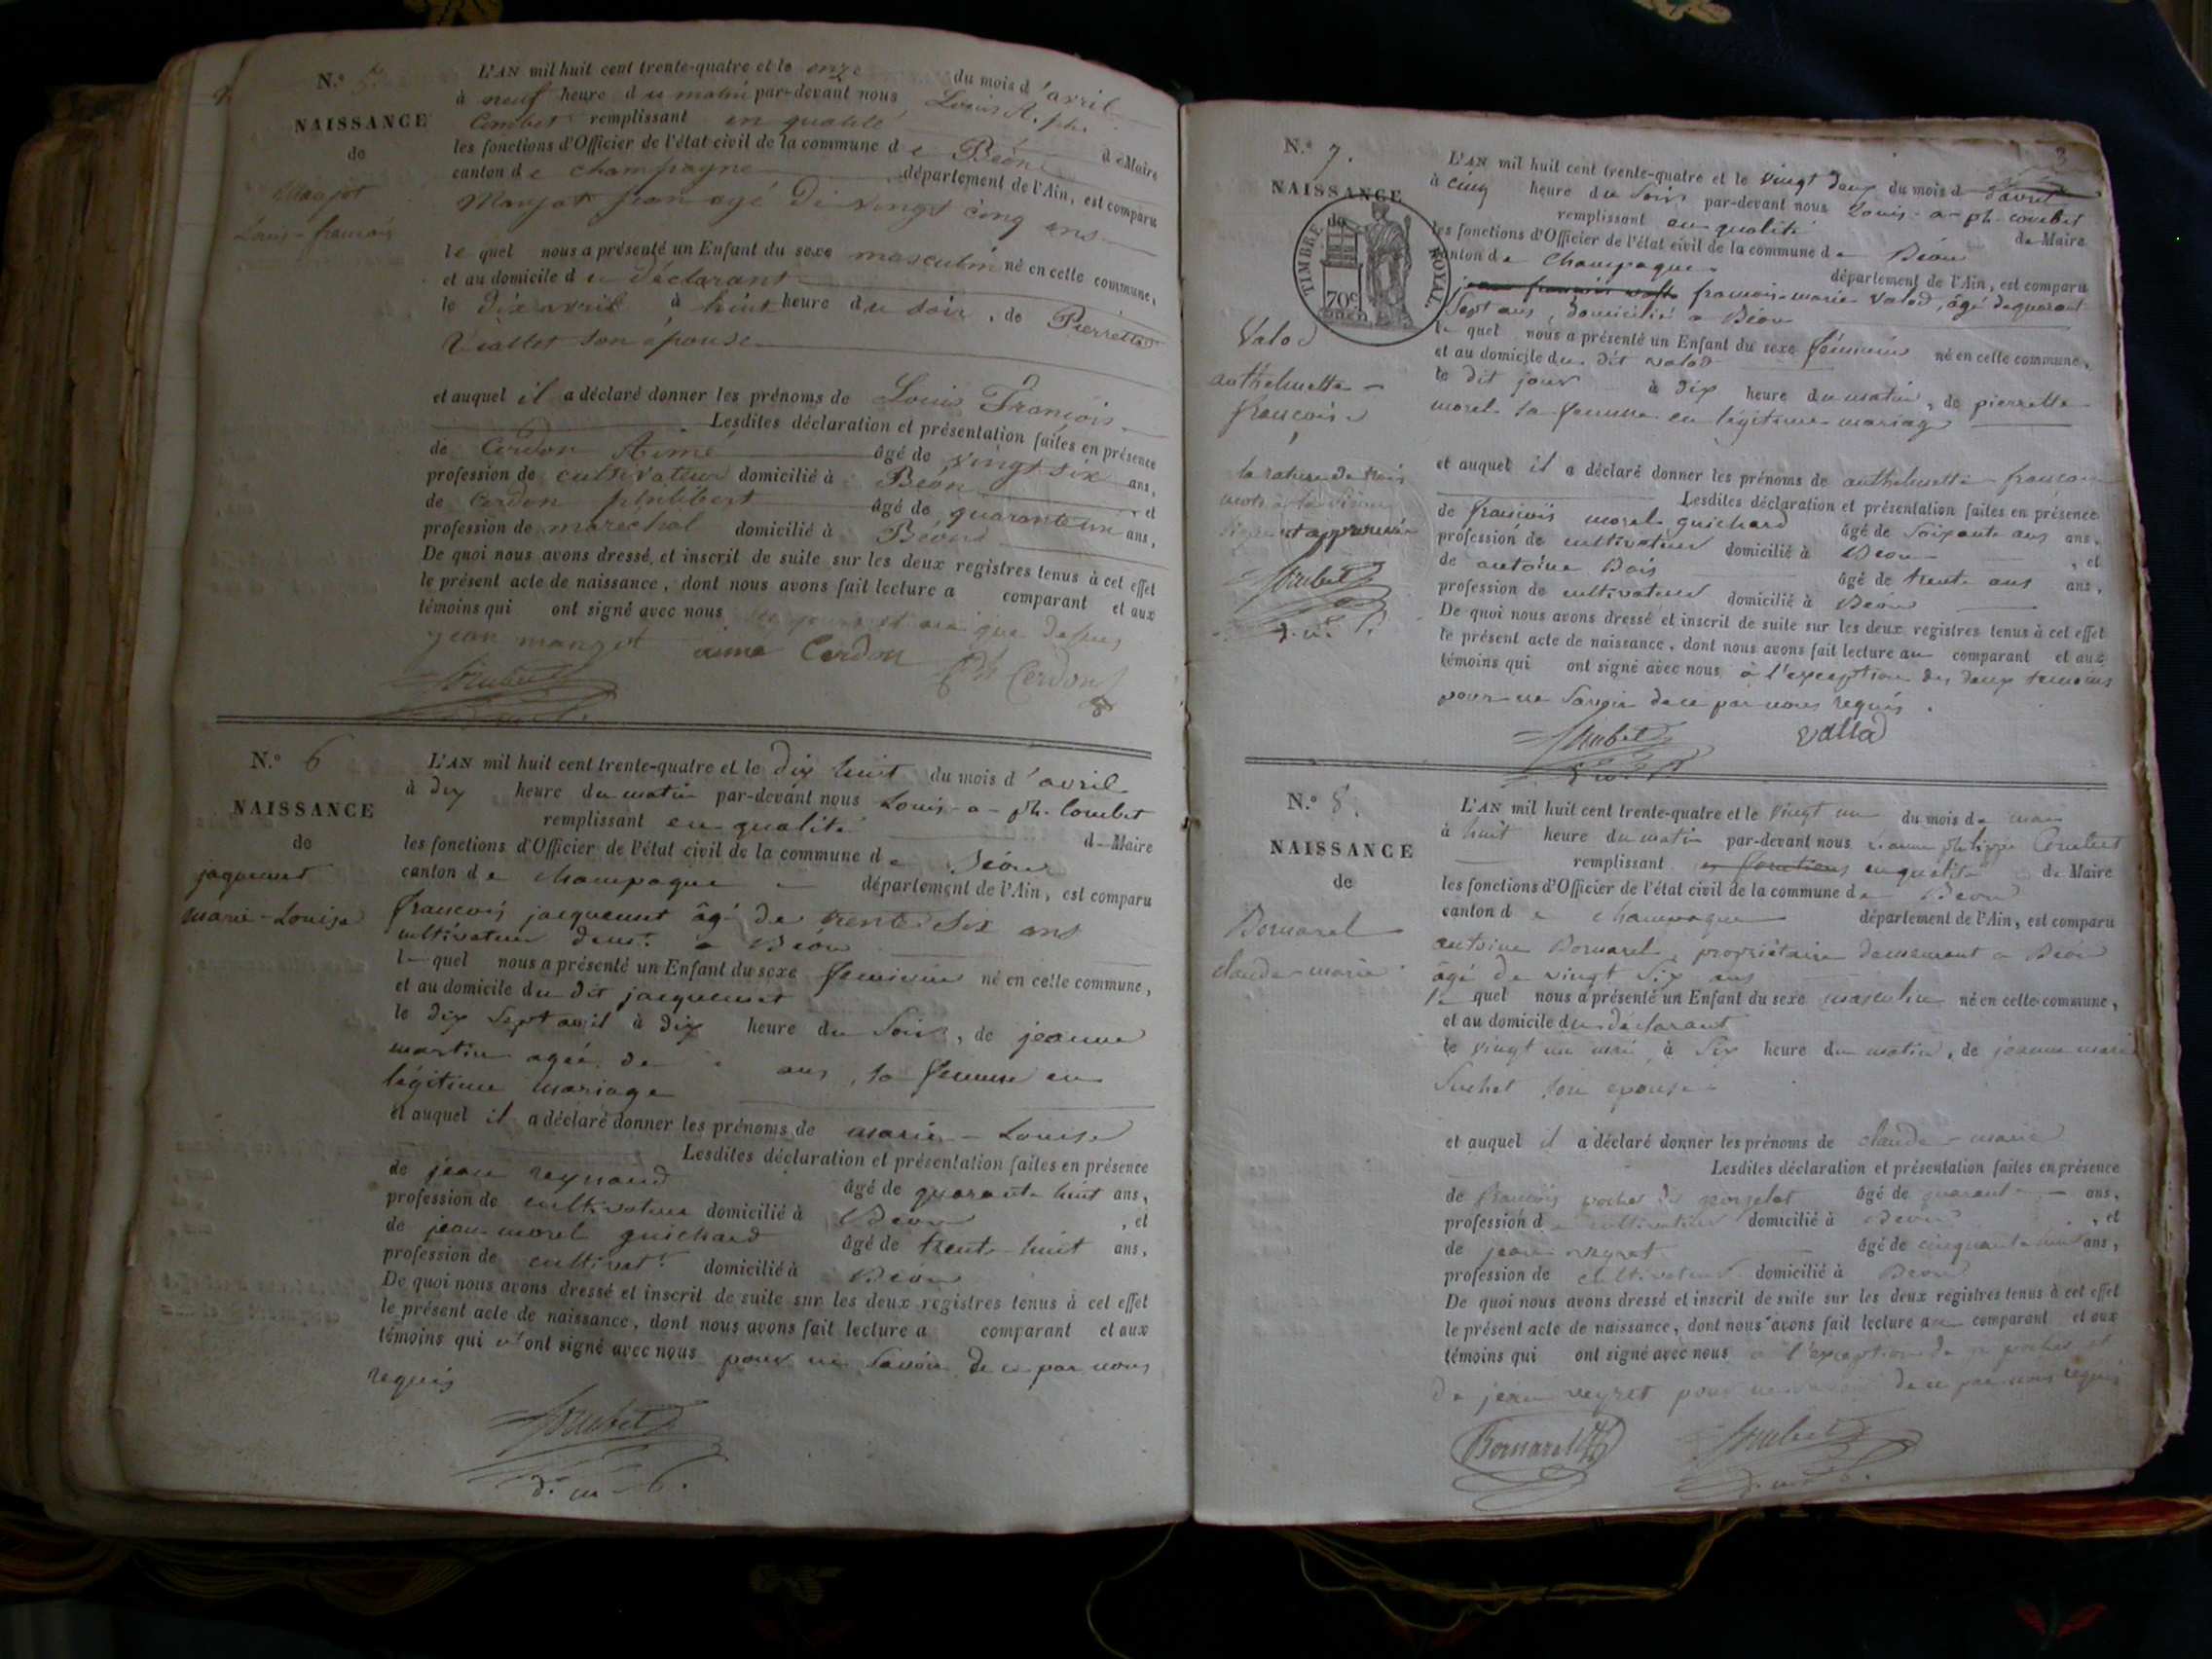 N.o 5.
NAISSANCE
de
Mangot
Louis-françois
L'AN mil huit cent trente-quatre et le onze du mois d'avril
à neuf heure du matin par-devant nous Louis A. ph.
Combet remplissant en qualité de Maire
les fonctions d'Officier de l'état civil de la commune de Béon
canton de Champagne département de l'Ain, est comparu
Mangot jean agé de vingt cinq ans
lequel nous a présenté un Enfant du sexe masculin né en cette commune,
et au domicile du déclarant
le dix avril à huit heure du soir, de Pierrette
Viallet son épouse
et auquel il a déclaré donner les prénoms de Louis François
Lesdites déclaration et présentation faites en présence
de Cerdon Aimé âgé de vingt six ans,
profession de cultivateur domicilié à Béon et
de Cerdon philibert âgé de quarante un ans,
profession de maréchal domicilié à Béon
De quoi nous avons dressé et inscrit de suite sur les deux registres tenus à cet effet
le présent acte de naissance, dont nous avons fait lecture a comparant et aux
témoins qui ont signé avec nous que dessus
jean mangot aimé Cerdon Ph Cerdon
Combet
N.o 6
NAISSANCE
de
jaquemet
marie-Louise
L'AN mil huit cent trente-quatre et le dix huit du mois d'avril
à dix heure du matin par-devant nous Louis-a-ph. Combet
remplissant en qualité de Maire
les fonctions d'Officier de l'état civil de la commune de Béon
canton de Champagne département de l'Ain, est comparu
francois jacquemet âgé de trente six ans
cultivateur demt. a Béon
lequel nous a présenté un Enfant du sexe feminin né en cette commune,
et au domicile du dit jacquemet
le dix sept avril à dix heure du soir, de jeanne
martin agée de ans, sa femme en
légitime mariage
et auquel il a déclaré donner les prénoms de marie-Louise
Lesdites déclaration et présentation faites en présence
de jean reynaud âgé de quarante huit ans,
profession de cultivateur domicilié à Béon, et
de jean morel guichard âgé de trente-huit ans,
profession de cultivatr. domicilié à Béon
De quoi nous avons dressé et inscrit de suite sur les deux registres tenus à cet effet
le présent acte de naissance, dont nous avons fait lecture a comparant et aux
témoins qui n'ont signé avec nous pour ne savoir de ce par nous
requis
Combet
3
N.o 7.
NAISSANCE
de
TIMBRE ROYAL.
70c
Valod
anthelmette-
francoise
la rature de trois
mots
est approuvée
Combet
L'AN mil huit cent trente-quatre et le vingt deux du mois d'avril
à cinq heure du Soir par-devant nous Louis-a-ph-combet
remplissant en qualité de Maire
les fonctions d'Officier de l'état civil de la commune de Béon
canton de Champagne département de l'Ain, est comparu
francois-marie Valod, âgé de quarante
Sept ans, domicilié a Béon
lequel nous a présenté un Enfant du sexe féminin né en cette commune,
et au domicile du dit valod
le dit jour à dix heure du matin, de pierrette
morel sa femme en légitime mariage
et auquel il a déclaré donner les prénoms de anthelmette francoise
Lesdites déclaration et présentation faites en présence
de francois morel guichard âgé de soixante ans ans,
profession de cultivateur domicilié à Béon, et
de antoine Bois âgé de trente ans ans,
profession de cultivateur domicilié à Béon
De quoi nous avons dressé et inscrit de suite sur les deux registres tenus à cet effet
le présent acte de naissance, dont nous avons fait lecture au comparant et aux
témoins qui ont signé avec nous à l'exception des deux temoins
pour ne savoir de ce par nous requis.
Combet vallod
N.o 8.
NAISSANCE
de
Bornarel
claude-marie
L'AN mil huit cent trente-quatre et le vingt un du mois de mai
à huit heure du matin par-devant nous philippe Combet
remplissant en qualité de Maire
les fonctions d'Officier de l'état civil de la commune de Béon
canton de Champagne département de l'Ain, est comparu
antoine Bornarel, propriétaire demeurant a Béon
âgé de vingt six ans
lequel nous a présenté un Enfant du sexe masculin né en cette commune,
et au domicile du déclarant
le vingt un mai à six heure du matin, de jeanne marie
Suchet son epouse
et auquel il a déclaré donner les prénoms de claude-marie
Lesdites déclaration et présentation faites en présence
de francois pochet dit âgé de quarante ans,
profession de cultivateur domicilié à Béon, et
de jean veyret âgé de cinquante huit ans,
profession de cultivateur domicilié à Béon
De quoi nous avons dressé et inscrit de suite sur les deux registres tenus à cet effet
le présent acte de naissance, dont nous avons fait lecture au comparant et aux
témoins qui ont signé avec nous à l'exception de pochet et
de jean veyret pour ne savoir de ce par nous requis
Bornarel Combet